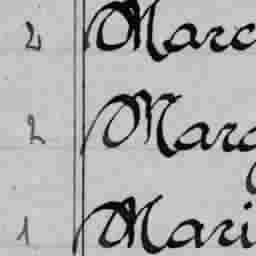 2 Marc
2 Marg
1 Mari